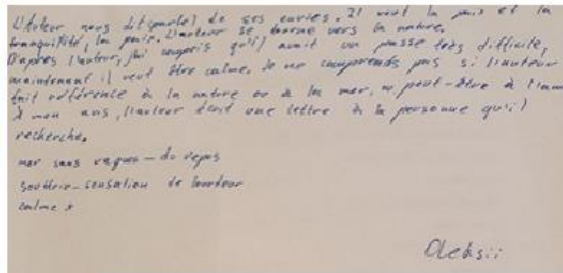 L'auteur nous dit (parle) de ses envies. Il veut la paix et la
tranquilité, la paix. L'auteur se tourne vers la nature.
D'après l'auteur, j'ai compris qu'il avait un passe très difficile,
maintenant il veut être calme. Je ne comprends pas si l'auteur
fait référence à la nature ou à la mer, peut-être à l'amour
À mon avis, l'auteur écrit une lettre à la personne qu'il
recherche.
mer sans vagues - du repos
sensation de
calme
Oleksii